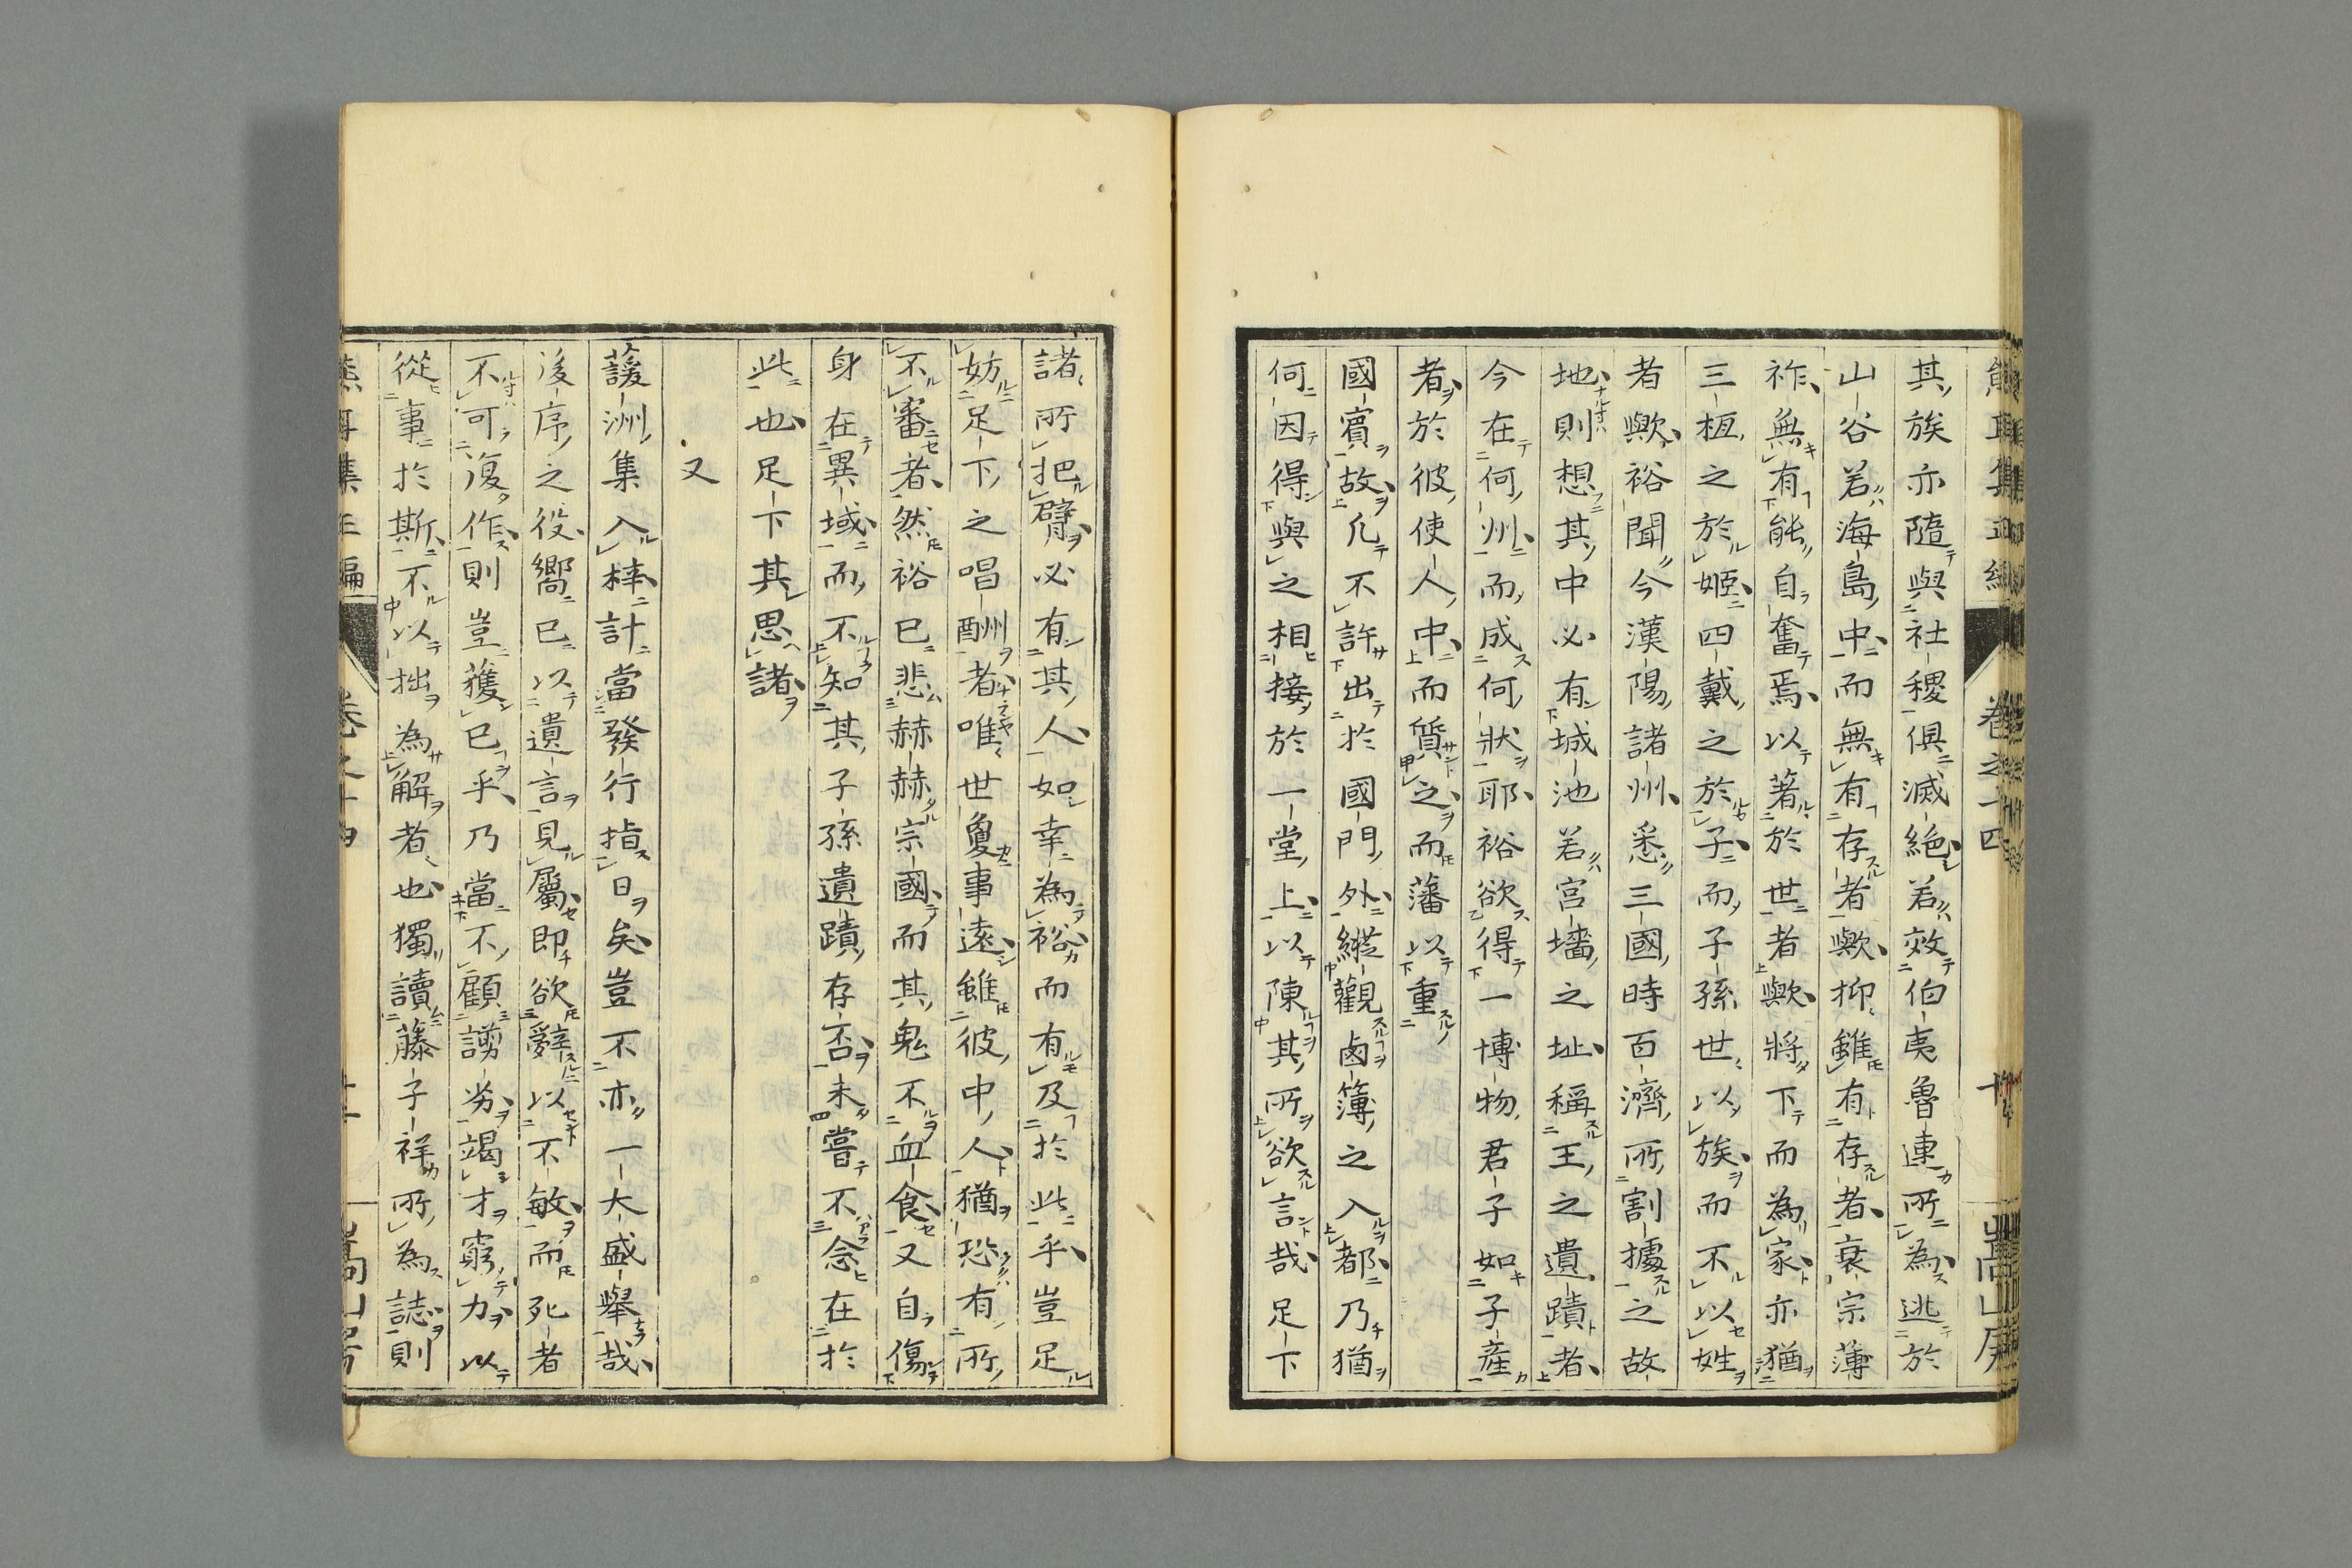 其族亦隨與社稷俱滅絕若效伯夷魯連所為逃於
山谷若海島中而無有存者歟抑雖有存者衰宗薄
祚無有能自奮焉以著於世者歟將下而為家亦猶
三桓之於姬四戴之於子而子孫世以族而不以姓
者歟裕聞今漢陽諸州悉三國時百濟所割據之故
地則想其中必有城池若宮墻之址稱王之遺蹟者
今在何州而成何狀耶裕欲得一博物君子如子產
者於彼使人中而質之而藩以重
國賓故凡不許出於國門外縱觀鹵簿之入都乃猶
何因得與之相接於一堂上以陳其所欲言哉足下
諸所把臂必有其人如幸為裕而有及於此乎豈足
妨足下之唱酬者唯世敻事遠雖彼中人猶恐有所
不審者然裕已悲赫赫宗國而其鬼不血食又自傷
身在異域而不知其子孫遺蹟存否未嘗不念在於
此也足下其思諸
又
蘐洲集入梓計當發行指日矣豈不亦一大盛舉哉
後序之役嚮已以遺言見屬即欲辭以不敏而死者
不可復作則豈獲已乎乃當不顧謭劣竭才窮力以
從事於斯不以拙為解者也獨讀藤子祥所為誌則